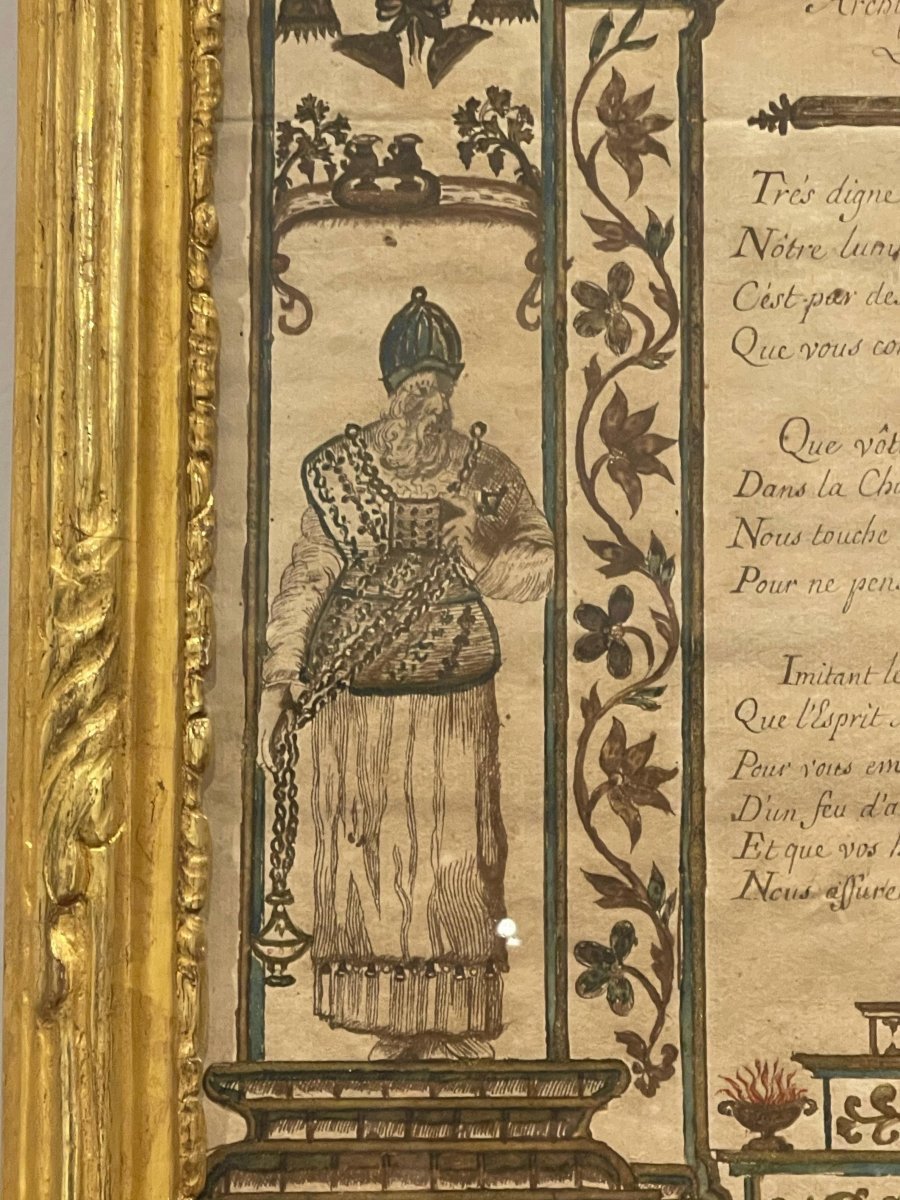 Archi
Trés digne
Nôtre lum
C'ést par des
Que vous con
Que vôt
Dans la Ch
Nous touche
Pour ne pens
Imitant le
Que l'Esprit
Pour vous em
D'un feu d'a
Et que vos
Nous assure